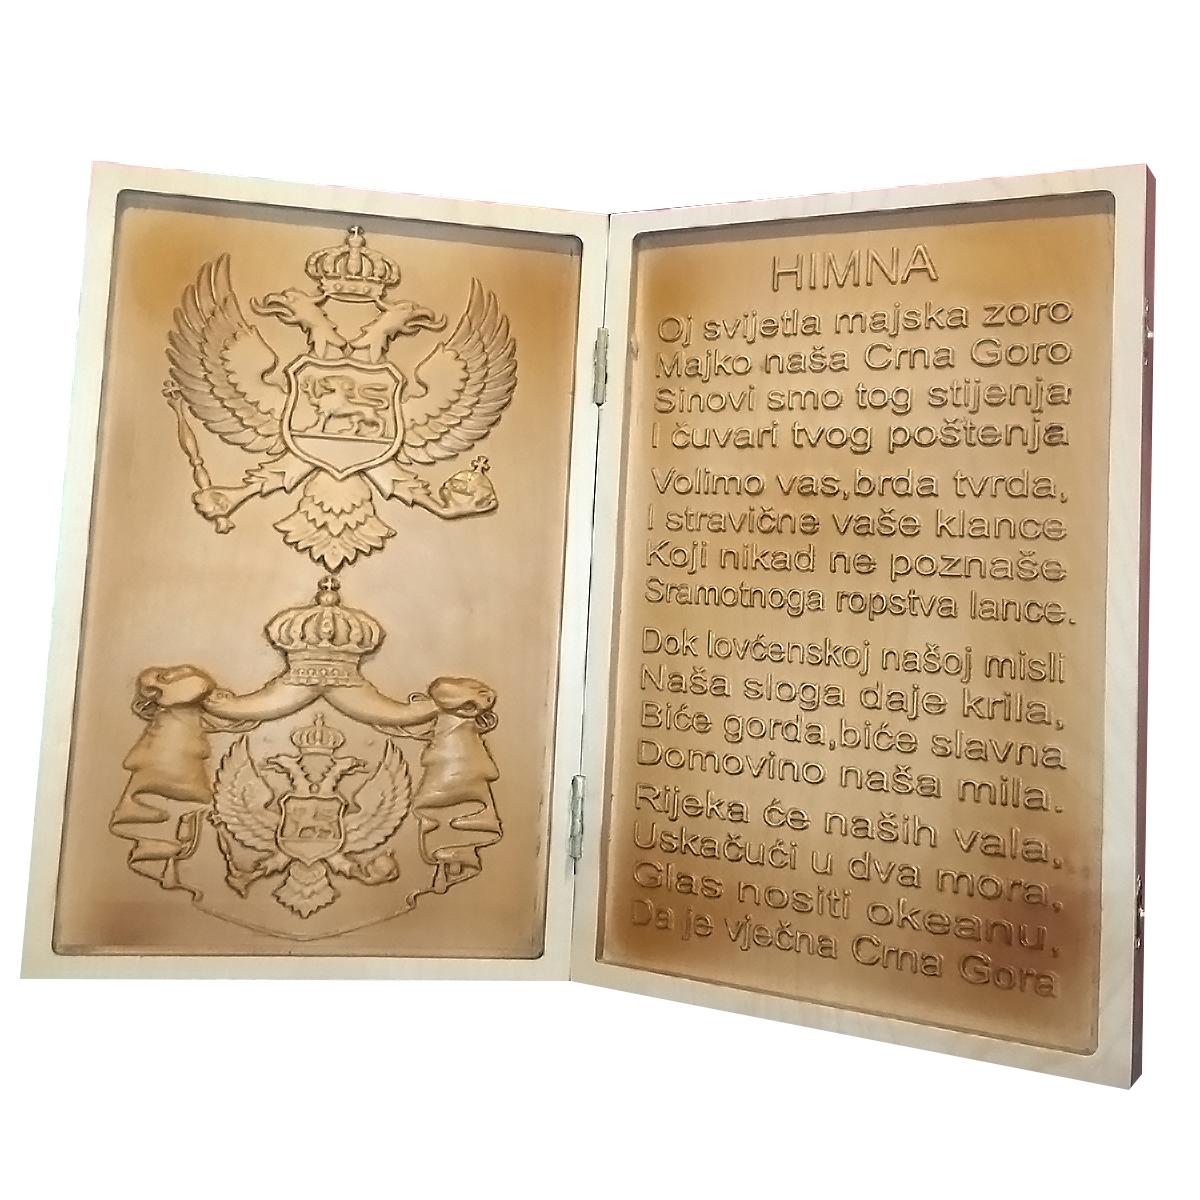 HIMNA
Oj svijetla majska zoro
Majko naša Crna Goro
Sinovi smo tog stijenja
I čuvari tvog poštenja
Volimo vas,brda tvrda,
I stravične vaše klance
Koji nikad ne poznaše
Sramotnoga ropstva lance.
Dok lovćenskoj našoj misli
Naša sloga daje krila,
Biće gorda,biće slavna
Domovino naša mila.
Rijeka će naših vala,
Uskačući u dva mora,
Glas nositi okeanu,
Da je vječna Crna Gora